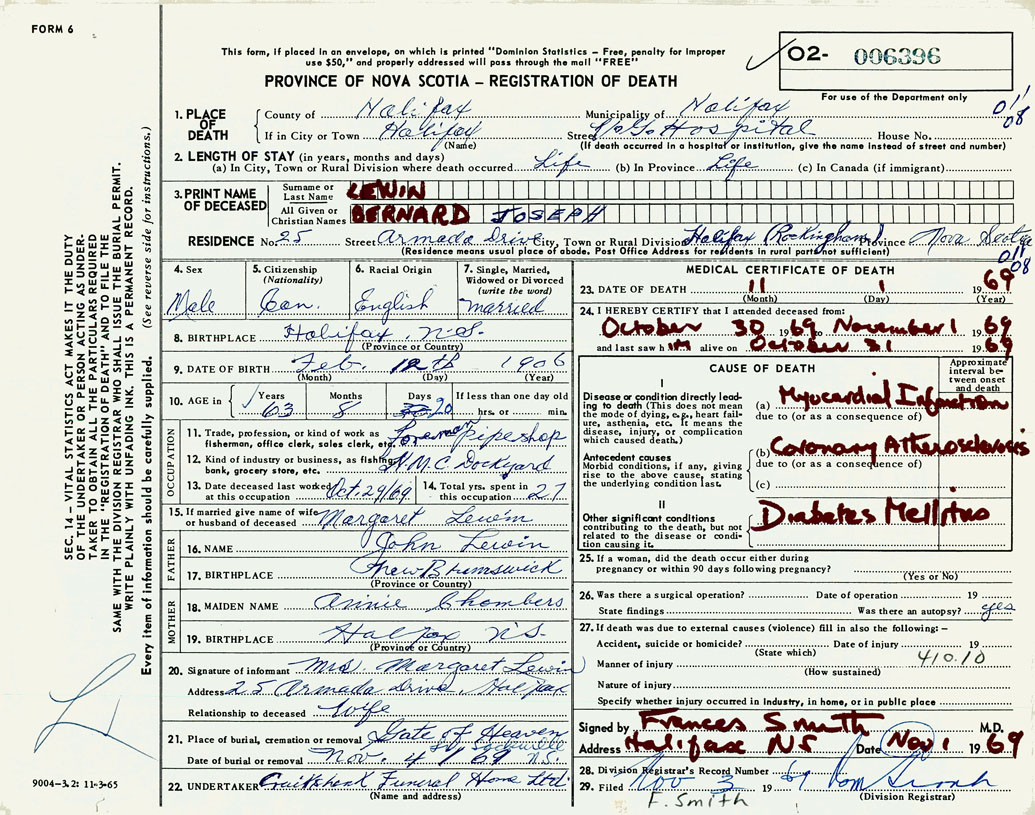 FORM 6
This form, if placed in an envelope, on which is printed "Dominion Statistics – Free, penalty for improper
use $50," and properly addressed will pass through the mail "FREE"
PROVINCE OF NOVA SCOTIA – REGISTRATION OF DEATH
02- 006396
For use of the Department only
011
08
1. PLACE OF DEATH
County of Halifax Municipality of Halifax
If in City or Town Halifax Street V.G. Hospital House No.
(Name) (If death occurred in a hospital or institution, give the name instead of street and number)
2. LENGTH OF STAY (in years, months and days)
(a) In City, Town or Rural Division where death occurred Life (b) In Province Life (c) In Canada (if immigrant)
3. PRINT NAME OF DECEASED
Surname or Last Name LEWIN
All Given or Christian Names BERNARD JOSEPH
RESIDENCE No. 25 Street Armada Drive City, Town or Rural Division Halifax (Rockingham) Province Nova Scotia
(Residence means usual place of abode. Post Office Address for residents in rural parts not sufficient)
011
08
4. Sex Male
5. Citizenship (Nationality) Can.
6. Racial Origin English
7. Single, Married, Widowed or Divorced (write the word) married
8. BIRTHPLACE Halifax, N.S.
(Province or Country)
9. DATE OF BIRTH Feb. 12th 1906
(Month) (Day) (Year)
10. AGE in Years 63 Months 8 Days 20 If less than one day old hrs. or min.
OCCUPATION
11. Trade, profession, or kind of work as fisherman, office clerk, sales clerk, etc. Foreman pipeshop
12. Kind of industry or business, as fishing, bank, grocery store, etc. H.M.C. Dockyard
13. Date deceased last worked at this occupation Oct. 29/69
14. Total yrs. spent in this occupation 27
15. If married give name of wife or husband of deceased Margaret Lewin
FATHER
16. NAME John Lewin
17. BIRTHPLACE New Brunswick
(Province or Country)
MOTHER
18. MAIDEN NAME Annie Chambers
19. BIRTHPLACE Halifax N.S.
(Province or Country)
20. Signature of informant Mrs. Margaret Lewin
Address 25 Armada Drive, Halifax
Relationship to deceased Wife
21. Place of burial, cremation or removal Gate of Heaven
Lr Sackville
Date of burial or removal Nov. 4/69 N.S.
22. UNDERTAKER Cruikshank Funeral Home Ltd
(Name and address)
MEDICAL CERTIFICATE OF DEATH
23. DATE OF DEATH 11 1 1969
(Month) (Day) (Year)
24. I HEREBY CERTIFY that I attended deceased from:
October 30 1969 to November 1 1969
and last saw him alive on October 31 1969
CAUSE OF DEATH
Approximate interval between onset and death
I
Disease or condition directly leading to death (This does not mean the mode of dying, e.g., heart failure, asthenia, etc. It means the disease, injury, or complication which caused death.)
(a) Myocardial Infarction
due to (or as a consequence of)
Antecedent causes
Morbid conditions, if any, giving rise to the above cause, stating the underlying condition last.
(b) Coronary Atherosclerosis
due to (or as a consequence of)
(c)
II
Other significant conditions contributing to the death, but not related to the disease or condition causing it.
Diabetes Mellitus
25. If a woman, did the death occur either during pregnancy or within 90 days following pregnancy?
(Yes or No)
26. Was there a surgical operation? Date of operation 19
State findings Was there an autopsy? yes
27. If death was due to external causes (violence) fill in also the following: –
Accident, suicide or homicide? Date of injury 19
(State which)
410.10
Manner of injury
(How sustained)
Nature of injury
Specify whether injury occurred in industry, in home, or in public place
Signed by Frances Smith M.D.
Address Halifax NS Date Nov 1 1969
28. Division Registrar's Record Number
29. Filed Nov 3 1969
(Division Registrar)
F. Smith
SEC. 14 – VITAL STATISTICS ACT MAKES IT THE DUTY
OF THE UNDERTAKER OR PERSON ACTING AS UNDER-
TAKER TO OBTAIN ALL THE PARTICULARS REQUIRED
IN THE "REGISTRATION OF DEATH" AND TO FILE THE
SAME WITH THE DIVISION REGISTRAR WHO SHALL ISSUE THE BURIAL PERMIT.
WRITE PLAINLY WITH UNFADING INK. THIS IS A PERMANENT RECORD.
Every item of information should be carefully supplied. (See reverse side for instructions.)
9004-3.2: 11-3-65